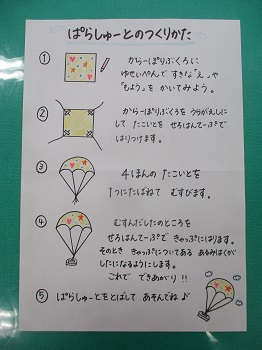 ぱらしゅーとのつくりかた
① からーぽりぶくろに
ゆせいぺんで すきな「え」や
「もよう」を かいてみよう。
② からーぽりぶくろを うらがえしに
して たこいとを せろはんてーぷで
はりつけます。
③ 4ほんの たこいとを
1つにたばねて むすびます。
④ むすんだしたのところを
せろはんてーぷで きゃっぷにはります。
そのとき きゃっぷについてある あるみはくが
したになるようにします。
これで できあがり!!
⑤ ぱらしゅーとをとばして あそんでね♪